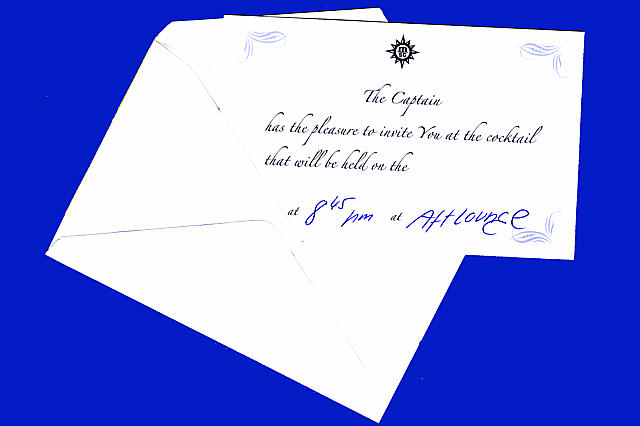 MSC
The Captain
has the pleasure to invite You at the cocktail
that will be held on the
at 8 45 pm at Aft Lounge